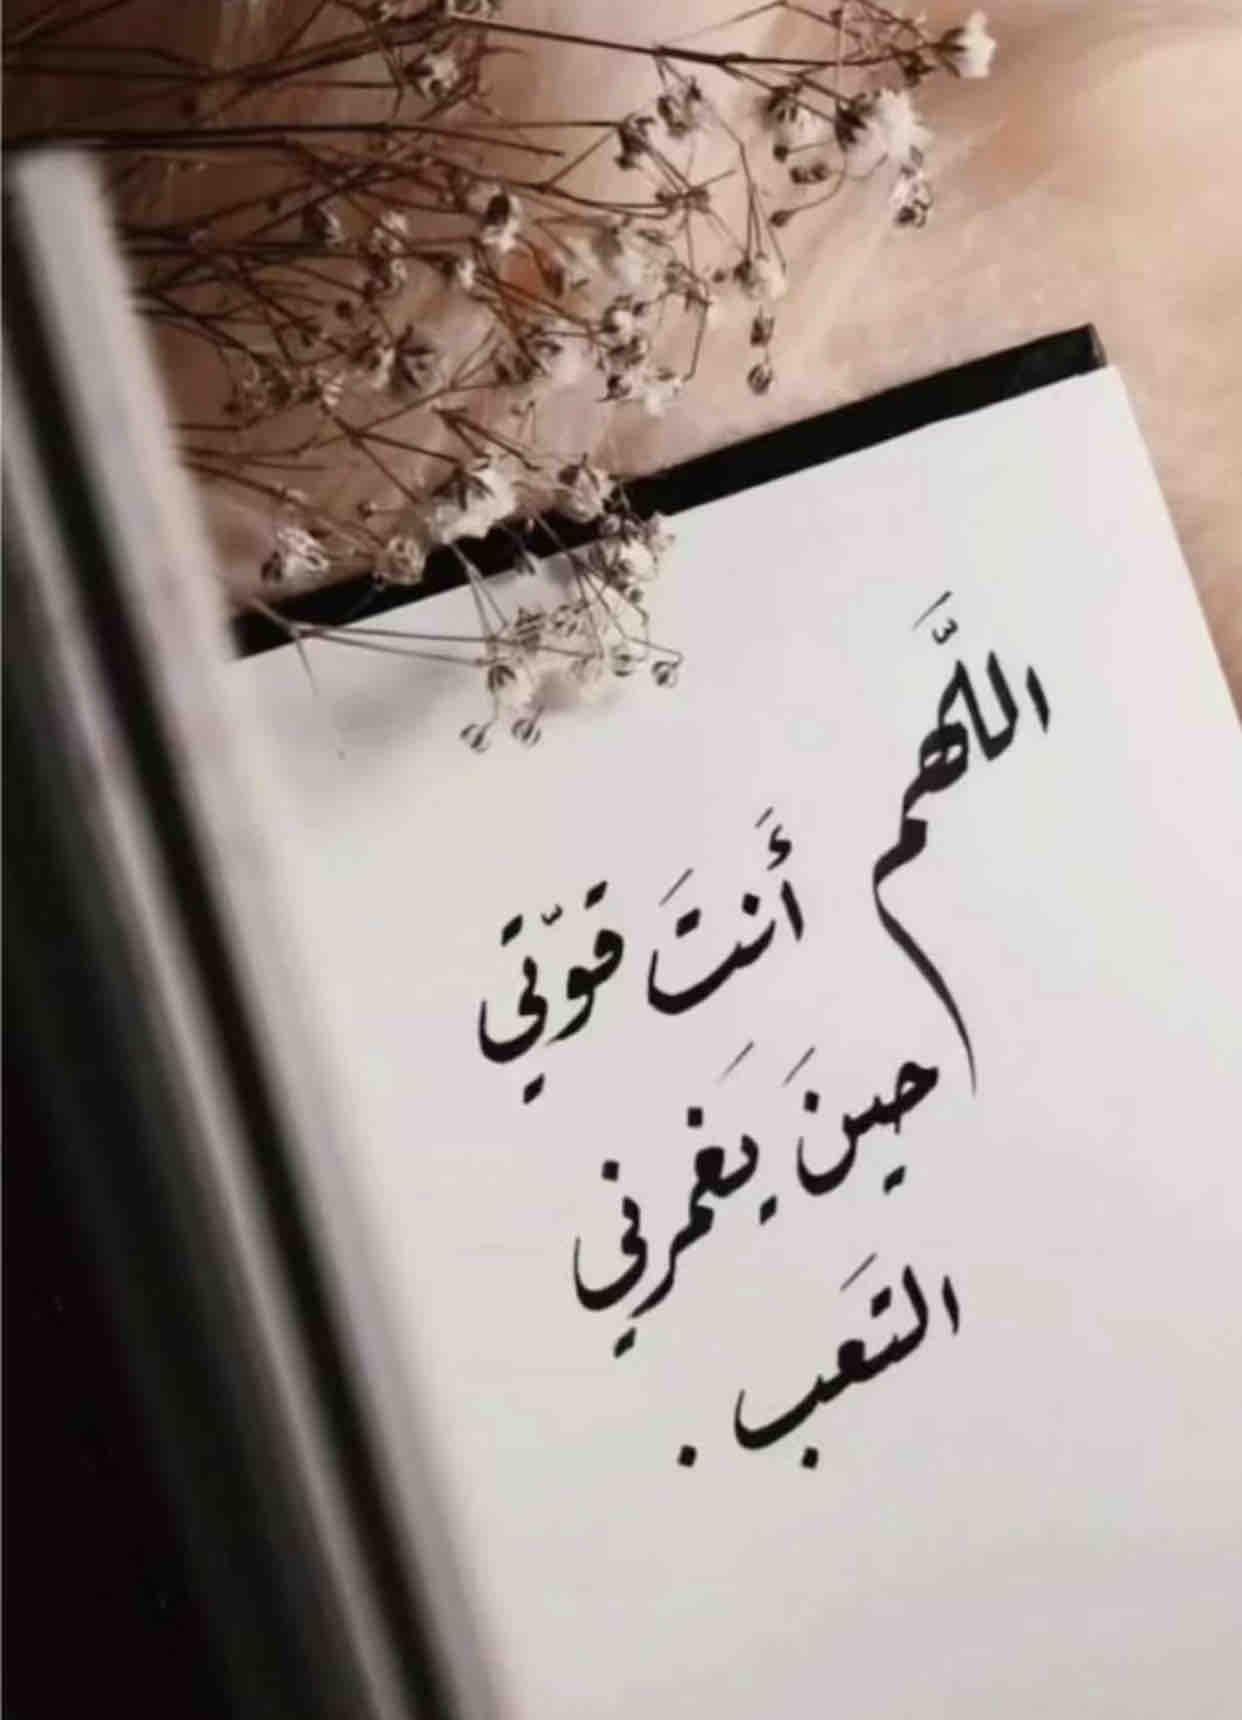 اللَّهم
أَنتَ قوّتي
حينَ يَغمرني
التَعب.